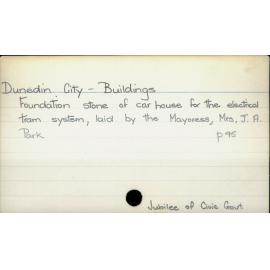 Dunedin City - Buildings
Foundation stone of car house for the electrical
tram system, laid by the Mayoress, Mrs, J. A.
Park p 95
Jubilee of Civic Govt.